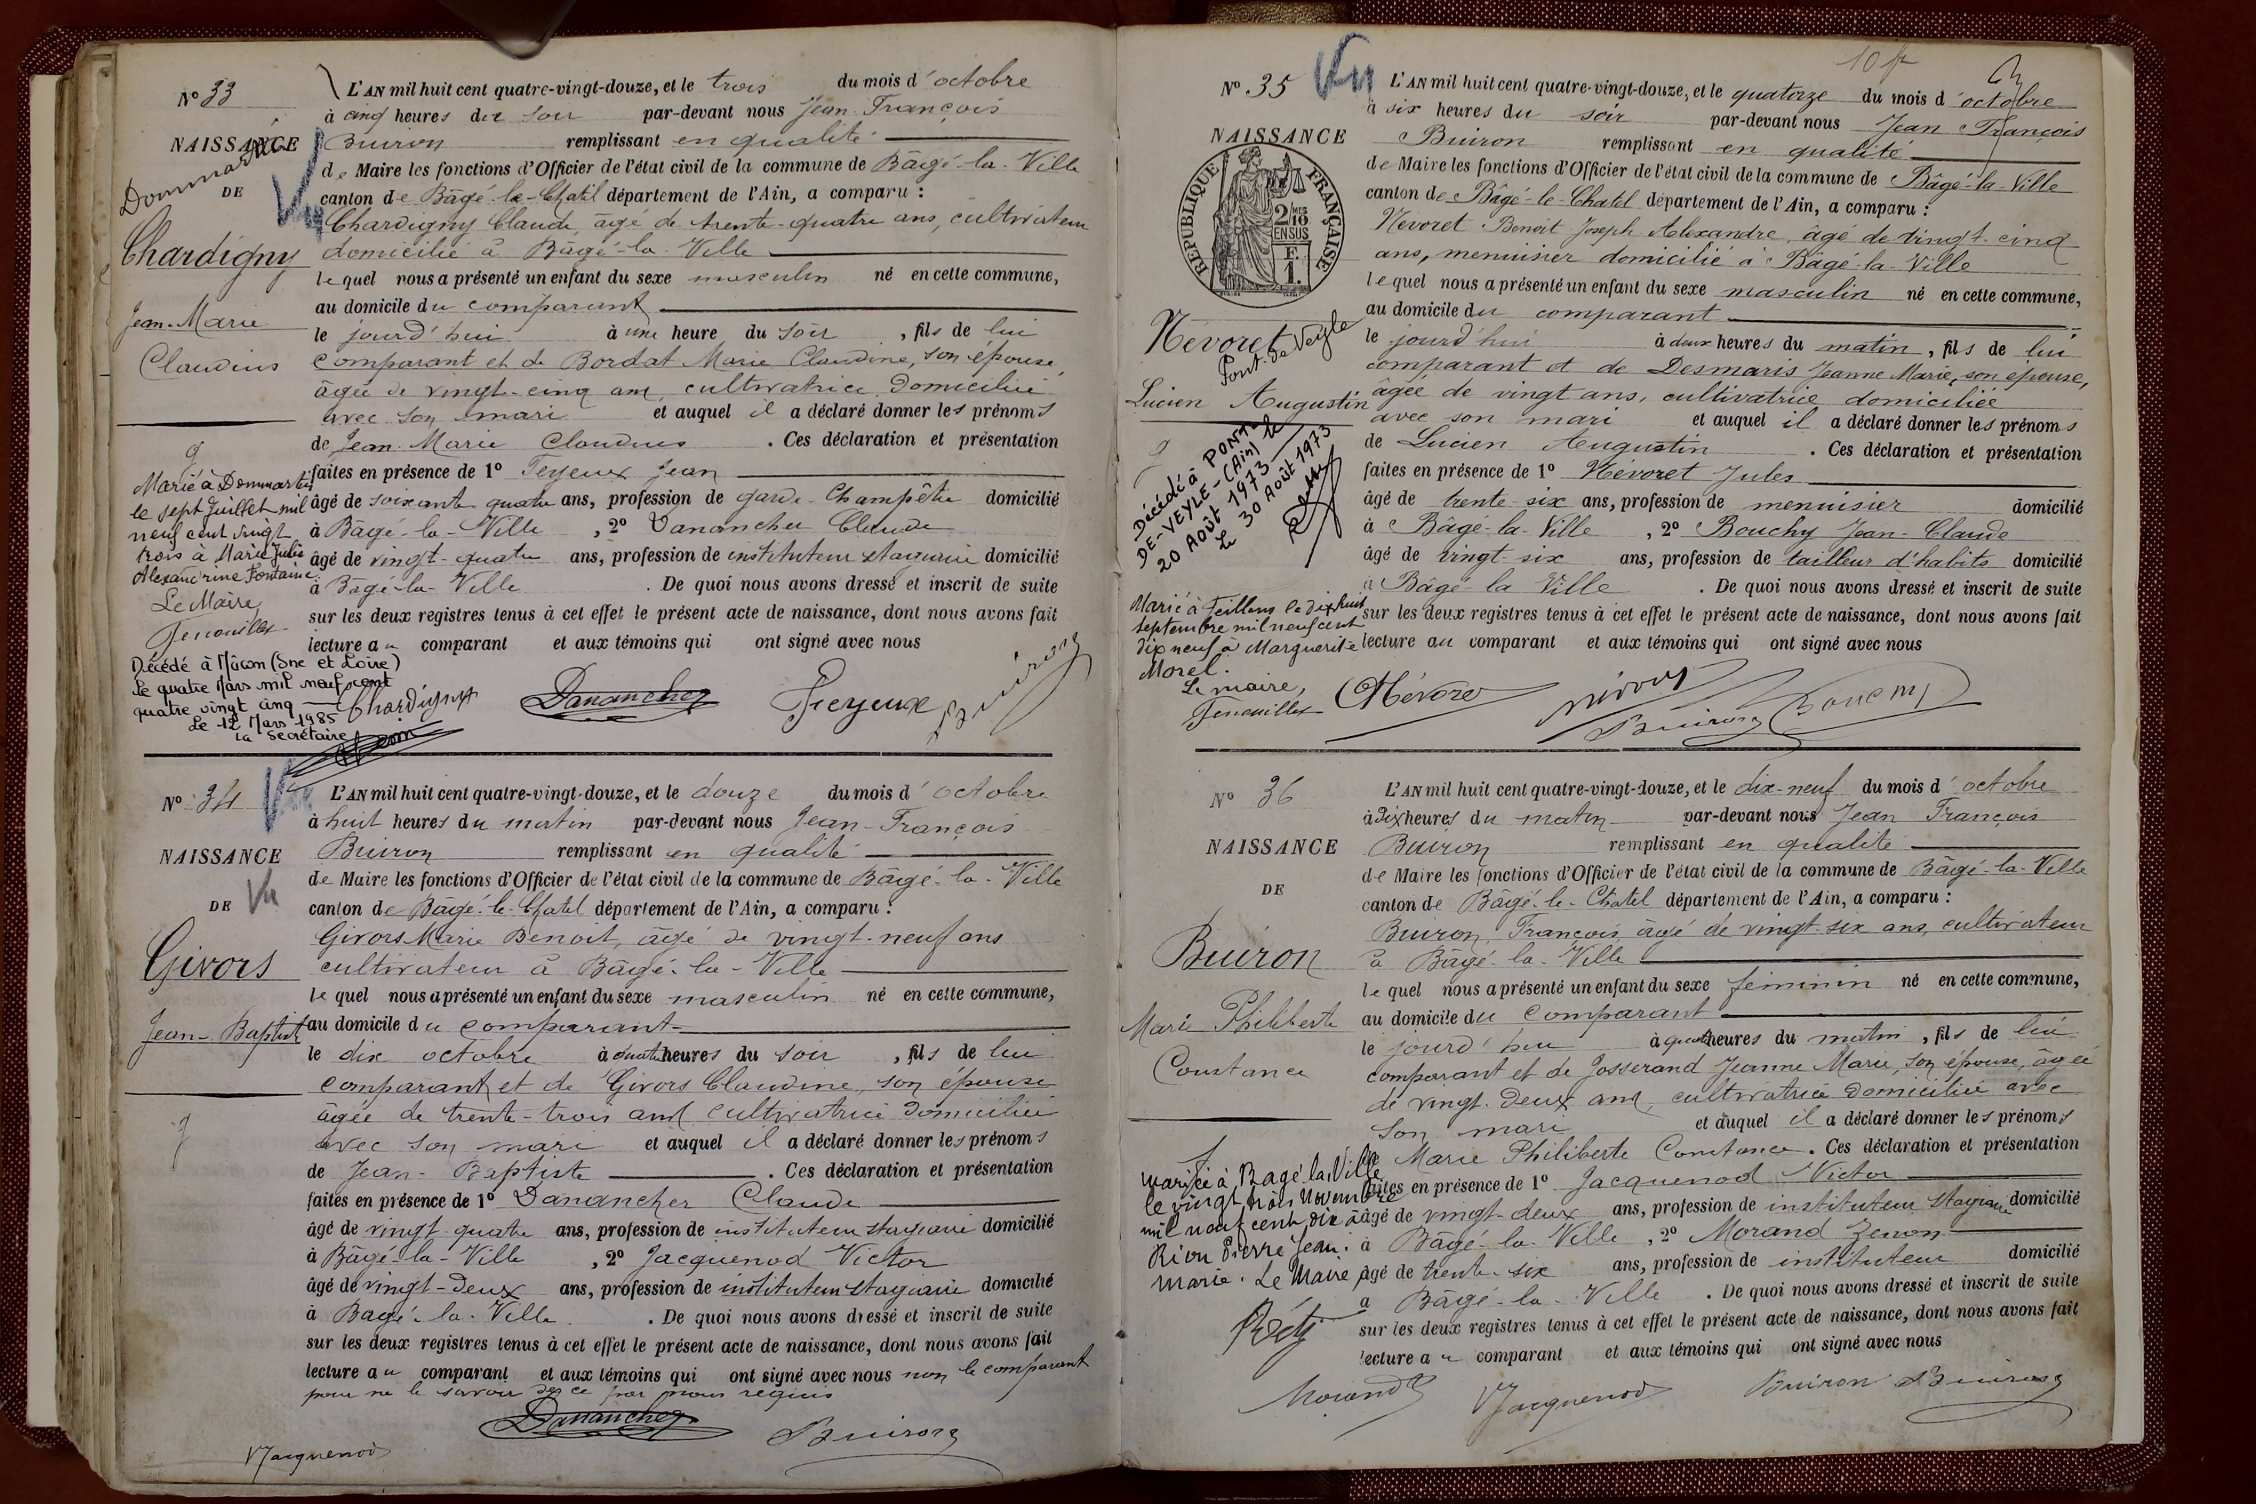 N° 33
NAISSANCE
DE
Dommartin
Chardigny
Jean-Marie
Claudius
Marié à Dommartin
le sept Juillet mil
neuf cent vingt
trois à Marie Julie
Alexandrine Fontaine.
Le Maire,
Fenouillet
Décédé à Mâcon (Sne et Loire)
le quatre Mars mil neuf cent
quatre vingt cinq
Le 12 Mars 1985
La Secrétaire
L'AN mil huit cent quatre-vingt-douze, et le trois du mois d'octobre
à cinq heures du soir par-devant nous Jean-François
Buiron remplissant en qualité
de Maire les fonctions d'Officier de l'état civil de la commune de Bâgé-la-Ville
canton de Bâgé-le-Chatel département de l'Ain, a comparu :
Chardigny Claude, âgé de trente-quatre ans, cultivateur
domicilié à Bâgé-la-Ville
lequel nous a présenté un enfant du sexe masculin né en cette commune,
au domicile du comparant
le jourd'hui à une heure du soir, fils de lui
comparant et de Bordat Marie Claudine, son épouse,
âgée de vingt-cinq ans, cultivatrice domiciliée
avec son mari et auquel il a déclaré donner les prénoms
de Jean-Marie Claudius. Ces déclaration et présentation
faites en présence de 1° Feyeux Jean
âgé de soixante quatre ans, profession de garde-Champêtre domicilié
à Bâgé-la-Ville, 2° Danancher Claude
âgé de vingt-quatre ans, profession de instituteur stagiaire domicilié
à Bâgé-la-Ville. De quoi nous avons dressé et inscrit de suite
sur les deux registres tenus à cet effet le présent acte de naissance, dont nous avons fait
lecture au comparant et aux témoins qui ont signé avec nous
Chardigny Danancher Feyeux Buiron
N° 34
Vu
NAISSANCE
DE
Vu
Givors
Jean-Baptiste
L'AN mil huit cent quatre-vingt-douze, et le douze du mois d'octobre
à huit heures du matin par-devant nous Jean-François
Buiron remplissant en qualité
de Maire les fonctions d'Officier de l'état civil de la commune de Bâgé-la-Ville
canton de Bâgé-le-Chatel département de l'Ain, a comparu :
Givors Marie Benoit, âgé de vingt-neuf ans
cultivateur à Bâgé-la-Ville
lequel nous a présenté un enfant du sexe masculin né en cette commune,
au domicile du comparant
le dix octobre à quatre heures du soir, fils de lui
comparant et de Givors Claudine, son épouse
âgée de trente-trois ans cultivatrice domiciliée
avec son mari et auquel il a déclaré donner les prénoms
de Jean-Baptiste. Ces déclaration et présentation
faites en présence de 1° Danancher Claude
âgé de vingt-quatre ans, profession de instituteur stagiaire domicilié
à Bâgé-la-Ville, 2° Jacquenod Victor
âgé de vingt-deux ans, profession de instituteur stagiaire domicilié
à Bagé-la-Ville. De quoi nous avons dressé et inscrit de suite
sur les deux registres tenus à cet effet le présent acte de naissance, dont nous avons fait
lecture au comparant et aux témoins qui ont signé avec nous non le comparant
pour ne le savoir de ce par nous requis
Danancher Buiron
V Jacquenod
N° 35
Vu
NAISSANCE
RÉPUBLIQUE FRANÇAISE
2/10 MES
EN SUS
F.
1.
Névoret
Pont-de-Veyle
Lucien Augustin
Décédé à PONT-
DE-VEYLE-(Ain) le
20 Août 1973
Le 30 Août 1973
Marié à Feillens le dix huit
septembre mil neuf cent
dix neuf à Marguerite
Morel.
Le maire,
Fenouillet
L'AN mil huit cent quatre-vingt-douze, et le quatorze du mois d'octobre
à six heures du soir par-devant nous Jean François
Buiron remplissant en qualité
de Maire les fonctions d'Officier de l'état civil de la commune de Bâgé-la-Ville
canton de Bâgé-le-Chatel département de l'Ain, a comparu :
Névoret Benoit Joseph Alexandre, âgé de vingt-cinq
ans, menuisier domicilié à Bâgé-la-Ville
lequel nous a présenté un enfant du sexe masculin né en cette commune,
au domicile du comparant
le jourd'hui à deux heures du matin, fils de lui
comparant et de Desmaris Jeanne Marie, son épouse,
âgée de vingt ans, cultivatrice domiciliée
avec son mari et auquel il a déclaré donner les prénoms
de Lucien Augustin. Ces déclaration et présentation
faites en présence de 1° Névoret Jules
âgé de trente-six ans, profession de menuisier domicilié
à Bâgé-la-Ville, 2° Bouchy Jean-Claude
âgé de vingt-six ans, profession de tailleur d'habits domicilié
à Bâgé la Ville. De quoi nous avons dressé et inscrit de suite
sur les deux registres tenus à cet effet le présent acte de naissance, dont nous avons fait
lecture au comparant et aux témoins qui ont signé avec nous
Buiron Bouchy
N° 36
NAISSANCE
DE
Buiron
Marie Philiberte
Constance
Mariée à Bagé la Ville
le vingt trois Novembre
mil neuf cent dix à
Réon Pierre Jean.
Marie. Le Maire
Réty
L'AN mil huit cent quatre-vingt-douze, et le dix-neuf du mois d'octobre
à Dix heures du matin par-devant nous Jean François
Buiron remplissant en qualité
de Maire les fonctions d'Officier de l'état civil de la commune de Bâgé-la-Ville
canton de Bâgé-le-Chatel département de l'Ain, a comparu :
Buiron, François âgé de vingt-six ans, cultivateur
à Bâgé-la-Ville
lequel nous a présenté un enfant du sexe féminin né en cette commune,
au domicile du comparant
le jourd'hui à quatre heures du matin, fils de lui
comparant et de Josserand Jeanne Marie, son épouse, âgée
de vingt-deux ans, cultivatrice domiciliée avec
son mari et auquel il a déclaré donner les prénoms
de Marie Philiberte Constance. Ces déclaration et présentation
faites en présence de 1° Jacquenod Victor
âgé de vingt-deux ans, profession de instituteur stagiaire domicilié
à Bâgé-la-Ville, 2° Morand Zenon
âgé de trente-six ans, profession de instituteur domicilié
à Bâgé-la-Ville. De quoi nous avons dressé et inscrit de suite
sur les deux registres tenus à cet effet le présent acte de naissance, dont nous avons fait
lecture au comparant et aux témoins qui ont signé avec nous
Morand V Jacquenod Buiron Buiron